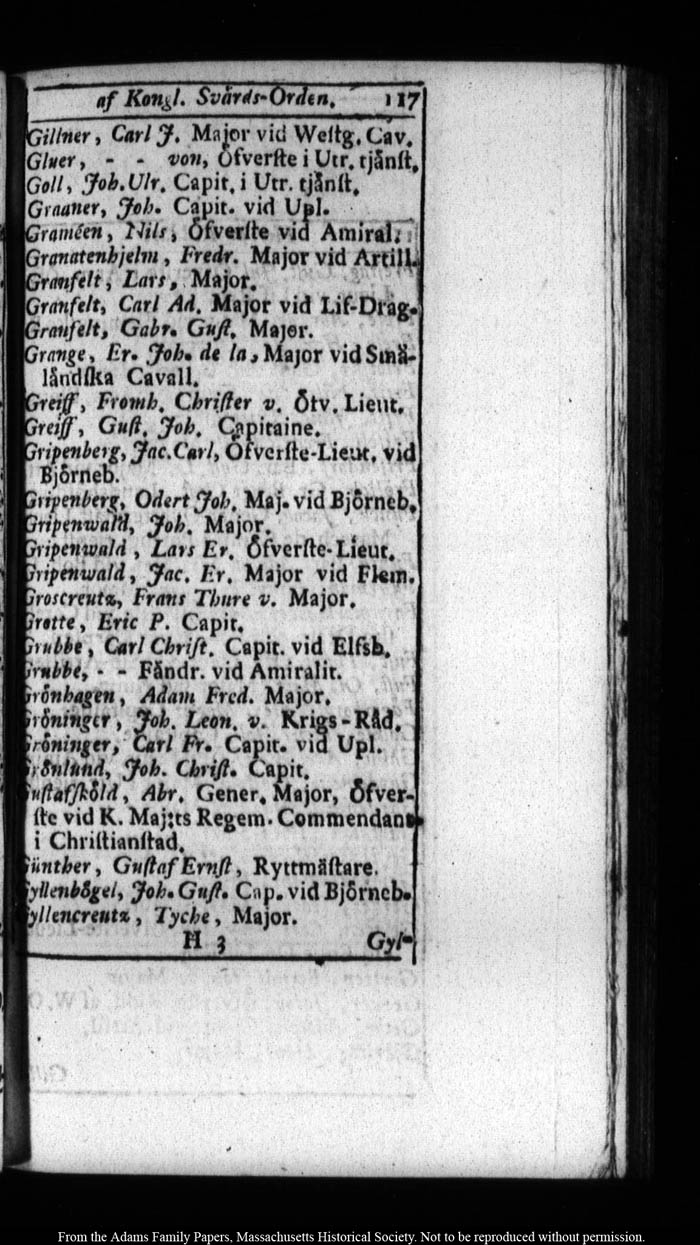 af Kongl. Svårds-Orden. 117
Gillner, Carl J. Major vid Weſtg. Cav.
Gluer, - - von, Öfverſte i Utr. tjånſt.
Goll, Joh. Ulr. Capit. i Utr. tjånſt.
Graaner, Joh. Capit. vid Upl.
Graméen, Nils, Öfverſte vid Amiral.
Granatenhjelm, Fredr. Major vid Artill.
Granfelt, Lars, Major.
Granfelt, Carl Ad. Major vid Lif-Drag.
Graufelt, Gabr. Guſt. Major.
Grange, Er. Joh. de la, Major vid Små-
låndſka Cavall.
Greiff, Fromh. Chriſter v. Ötv. Lieut.
Greiff, Guſt. Joh. Capitaine.
Gripenberg, Jac. Carl, Öfverſte-Lieut. vid
Bjôrneb.
Gripenberg, Odert Joh. Maj. vid Bjôrneb.
Gripenwald, Joh. Major.
Gripenwald, Lars Er. Öfverſte-Lieut.
Gripenwald, Jac. Er. Major vid Flem.
Groscreutz, Frans Thure v. Major.
Grotte, Eric P. Capit.
Grubbe, Carl Chriſt. Capit. vid Elfsb.
Grubbe, - - Fåndr. vid Amiralit.
Grônhagen, Adam Fred. Major.
Grôninger, Joh. Leon. v. Krigs-Råd.
Grôninger, Carl Fr. Capit. vid Upl.
Grônlund, Joh. Chriſt. Capit.
Guſtafſkôld, Abr. Gener. Major, Öfver-
ſte vid K. Maj:ts Regem. Commendant
i Chriſtianſtad.
Günther, Guſtaf Ernſt, Ryttmäſtare.
Gyllenbôgel, Joh. Guſt. Cap. vid Bjôrneb.
Gyllencreutz, Tyche, Major.
H 3 Gyl-
From the Adams Family Papers, Massachusetts Historical Society. Not to be reproduced without permission.